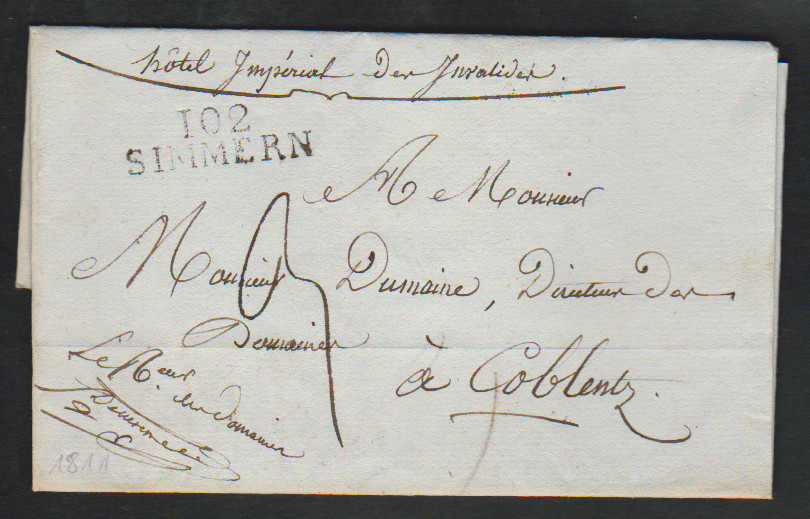 hôtel Impérial des Invalides.
102
SIMMERN
A Monsieur
Monsieur Dumaine, Directeur des
Domaines
à Coblentz.
Le R.eur
des Domaines
1811